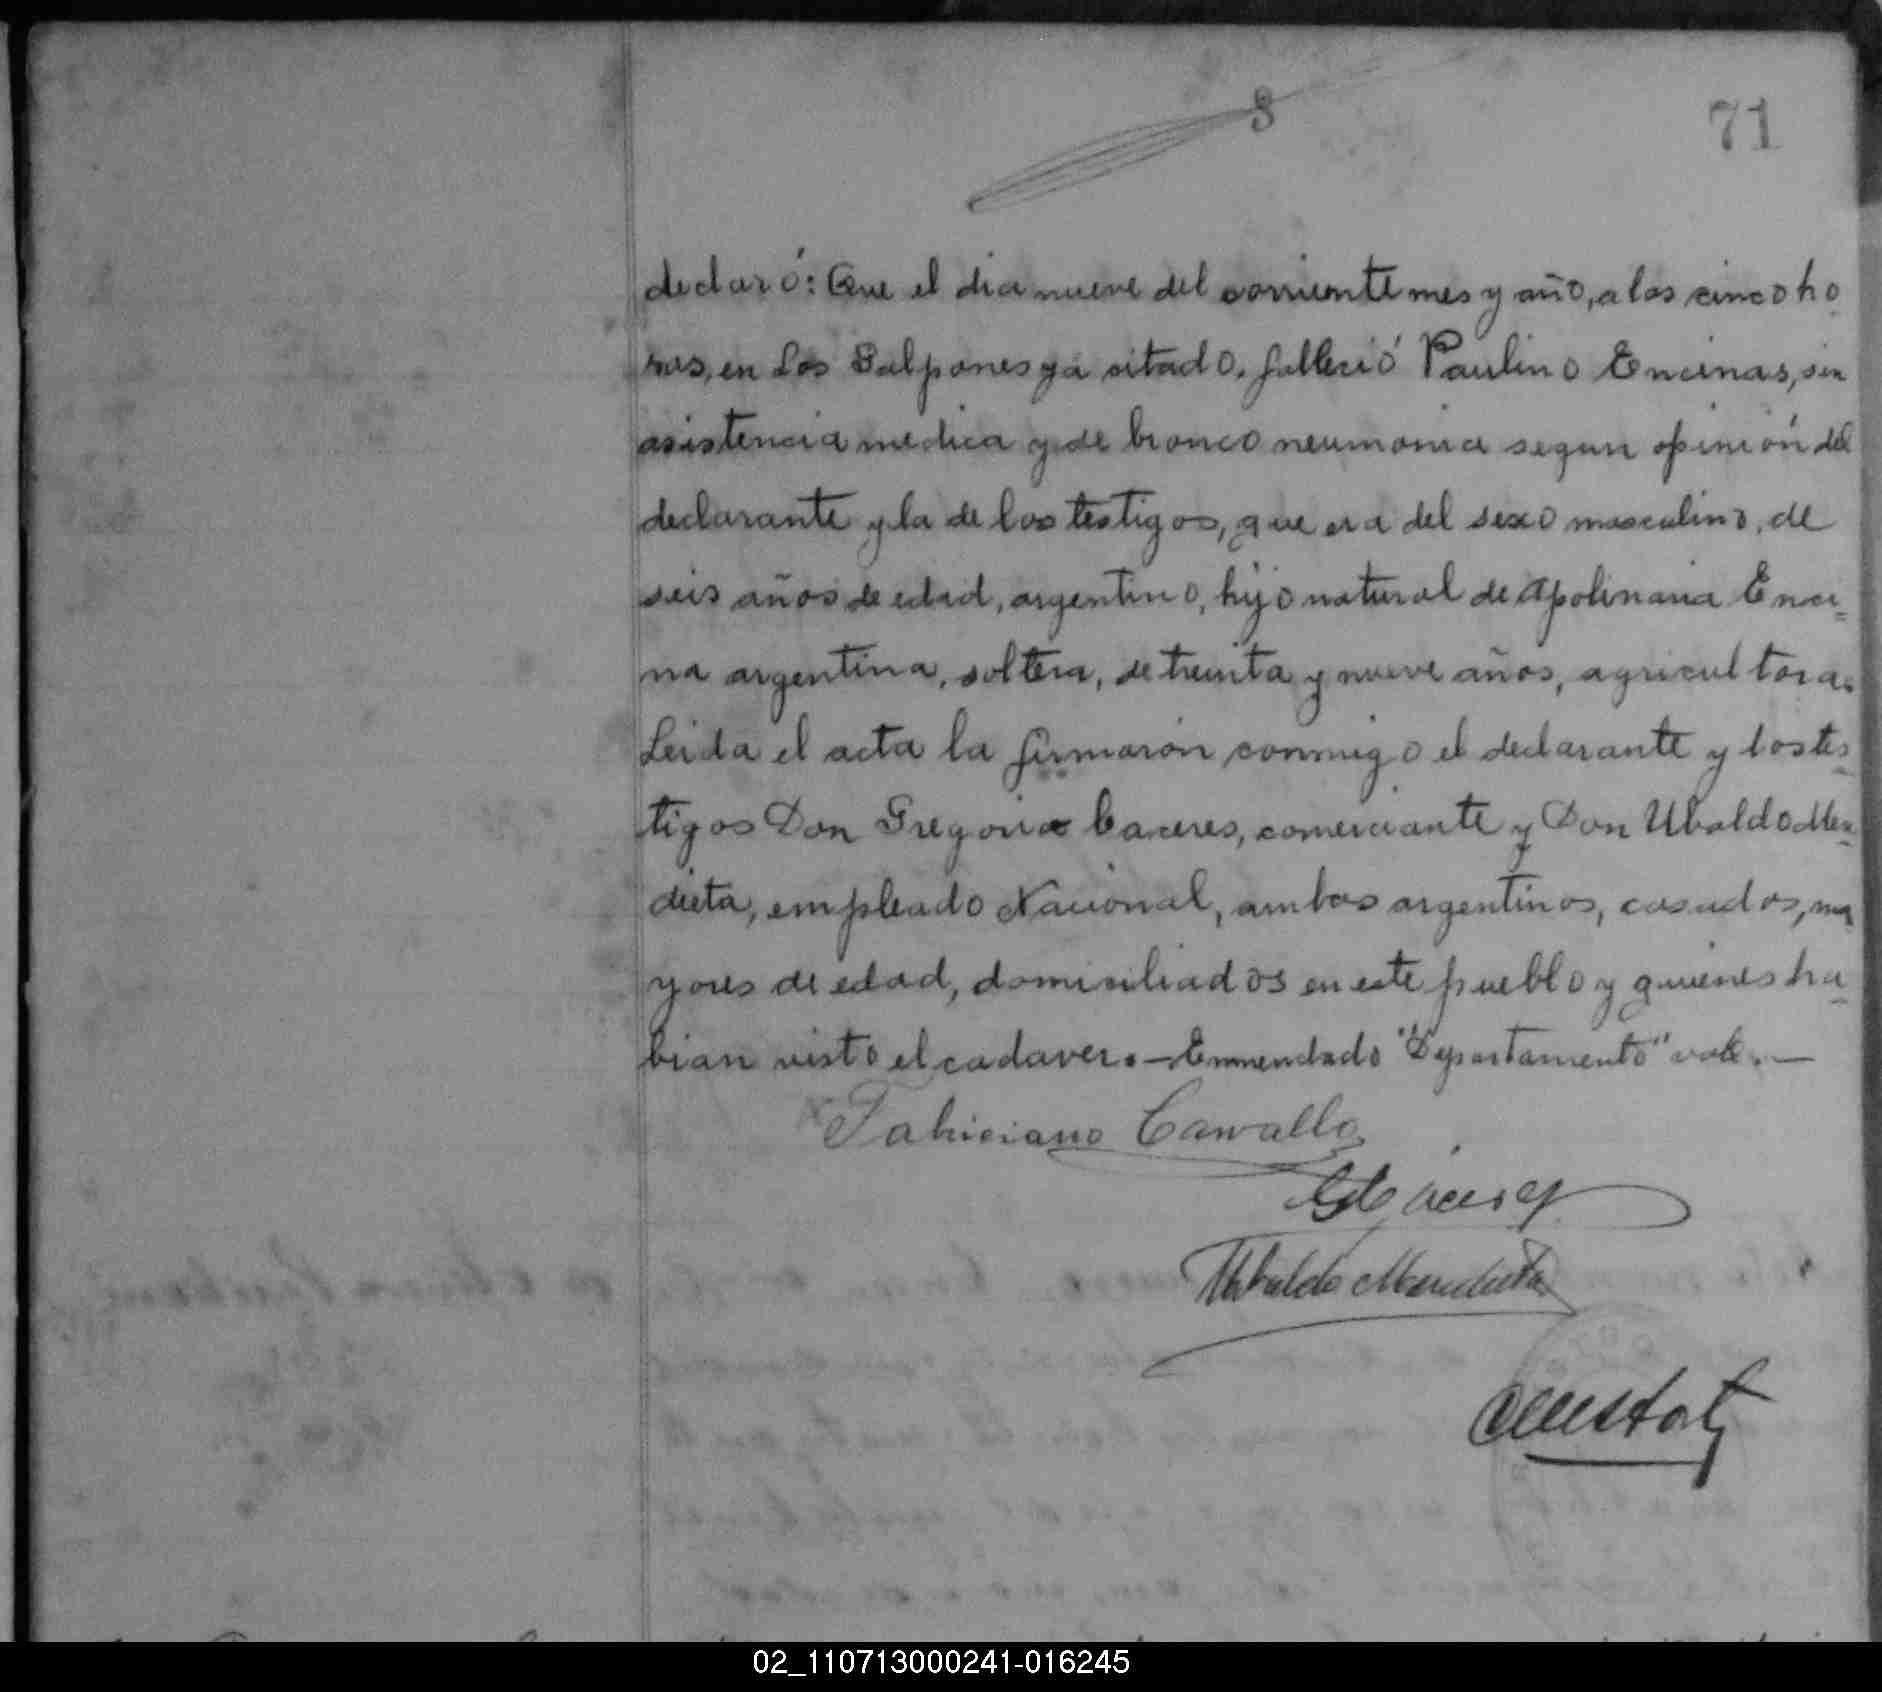 3
71
declaró: Que el dia nueve del corriente mes y año, a las cinco ho
ras, en Los Galpones ya citado, falleció Paulino Encinas, sin
asistencia medica y de bronco neumonia segun opinión del
declarante y la de los testigos, que era del sexo masculino, de
seis años de edad, argentino, hijo natural de Apolinaria Enci-
na argentina, soltera, de treinta y nueve años, agricultora.
Leida el acta la firmarón conmigo el declarante y los tes-
tigos Don Gregorio Caceres, comerciante y Don Ubaldo Men-
dieta, empleado Nacional, ambos argentinos, casados, ma-
yores de edad, domiciliados en este pueblo y quienes ha-
bian visto el cadaver.-Enmendado "Departamento" vale.-
Carvallo
Ubaldo Mendieta
02_110713000241-016245